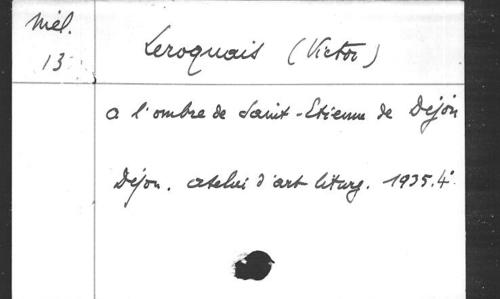 Mél.
13
Leroquais (Victor)
a l'ombre de Saint-Etienne de Dijon
Dijon. atelier d'art liturg. 1935. 4°